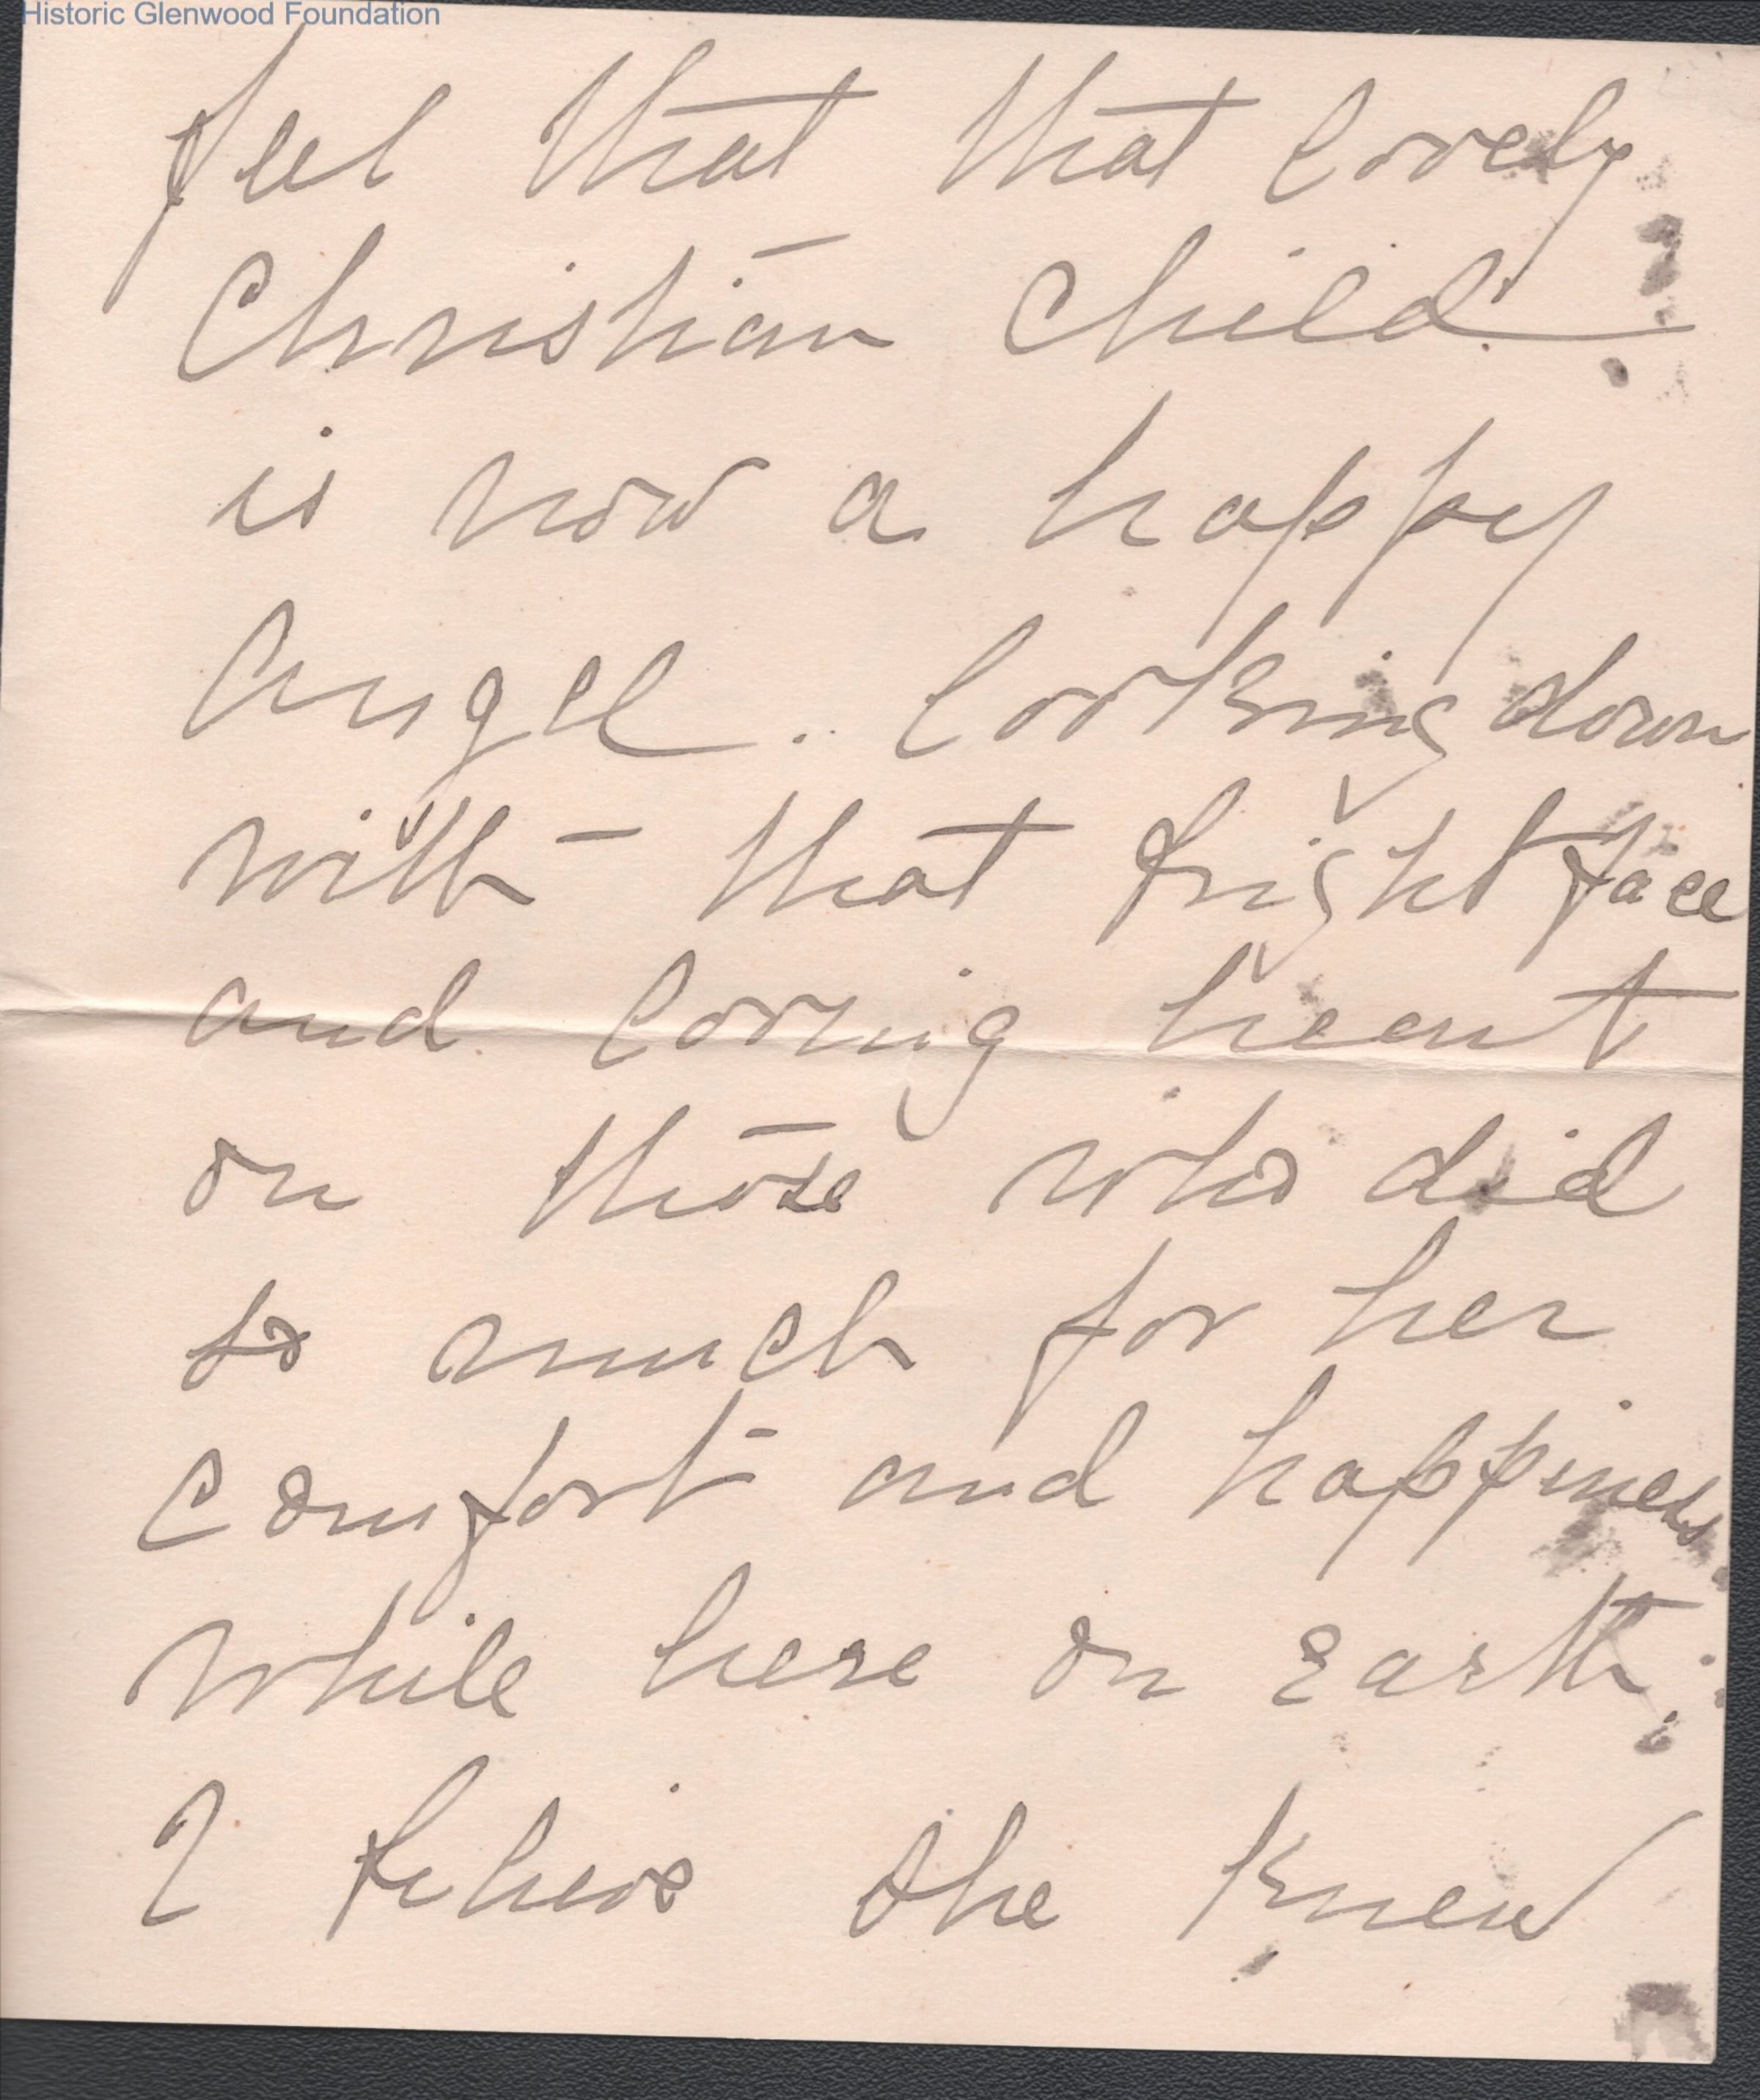 Historic Glenwood Foundation
feel that that lovely
Christian Child
is now a happy
Angel. looking down
with that bright face
and loving heart
on those who did
so much for her
comfort and happiness
while here on Earth.
I believe she knew